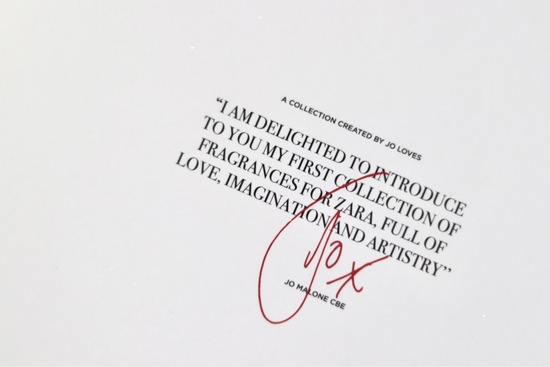 A COLLECTION CREATED BY JO LOVES
“I AM DELIGHTED TO INTRODUCE
TO YOU MY FIRST COLLECTION OF
FRAGRANCES FOR ZARA, FULL OF
LOVE, IMAGINATION AND ARTISTRY”
Jo x
JO MALONE CBE